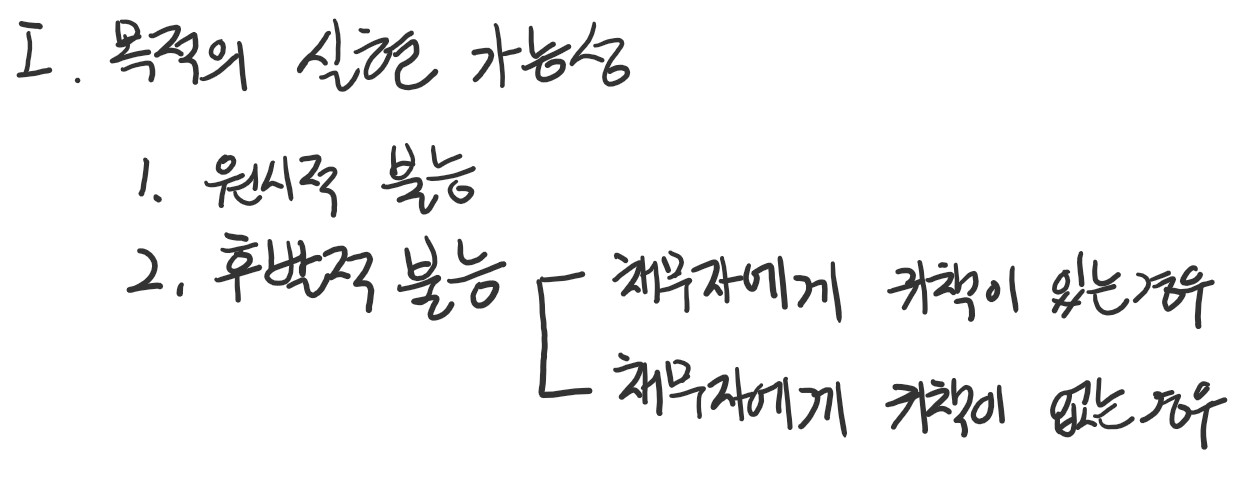 I. 목적의 실현 가능성
1. 원시적 불능
2. 후발적 불능
채무자에게 귀책이 있는 경우
채무자에게 귀책이 없는 경우